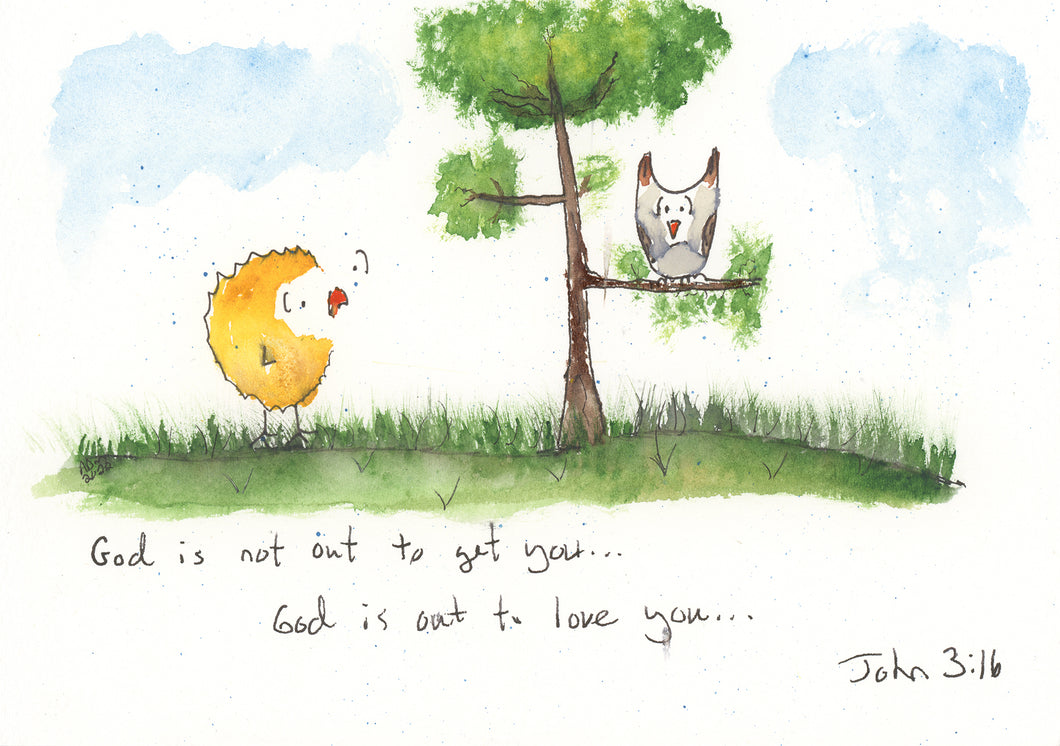 God is not out to get you...
God is out to love you...
John 3:16